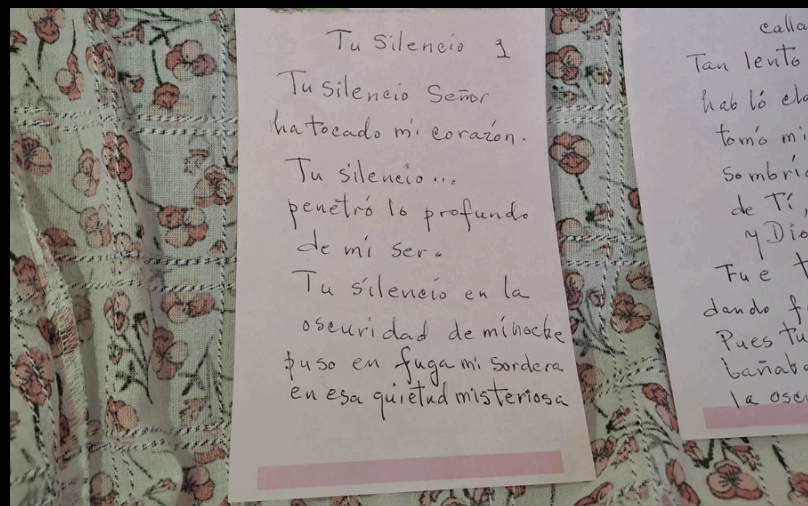 Tu Silencio 1
Tu silencio Señor
ha tocado mi corazón.
Tu silencio...
penetró lo profundo
de mi ser.
Tu silencio en la
oscuridad de mi noche
puso en fuga mi sordera
en esa quietud misteriosa
calla
Tan lento
habló cla
tomó mi
sombrí
de Tí,
y Dio
Fue t
dando f
Pues tu
bañab
la oscu